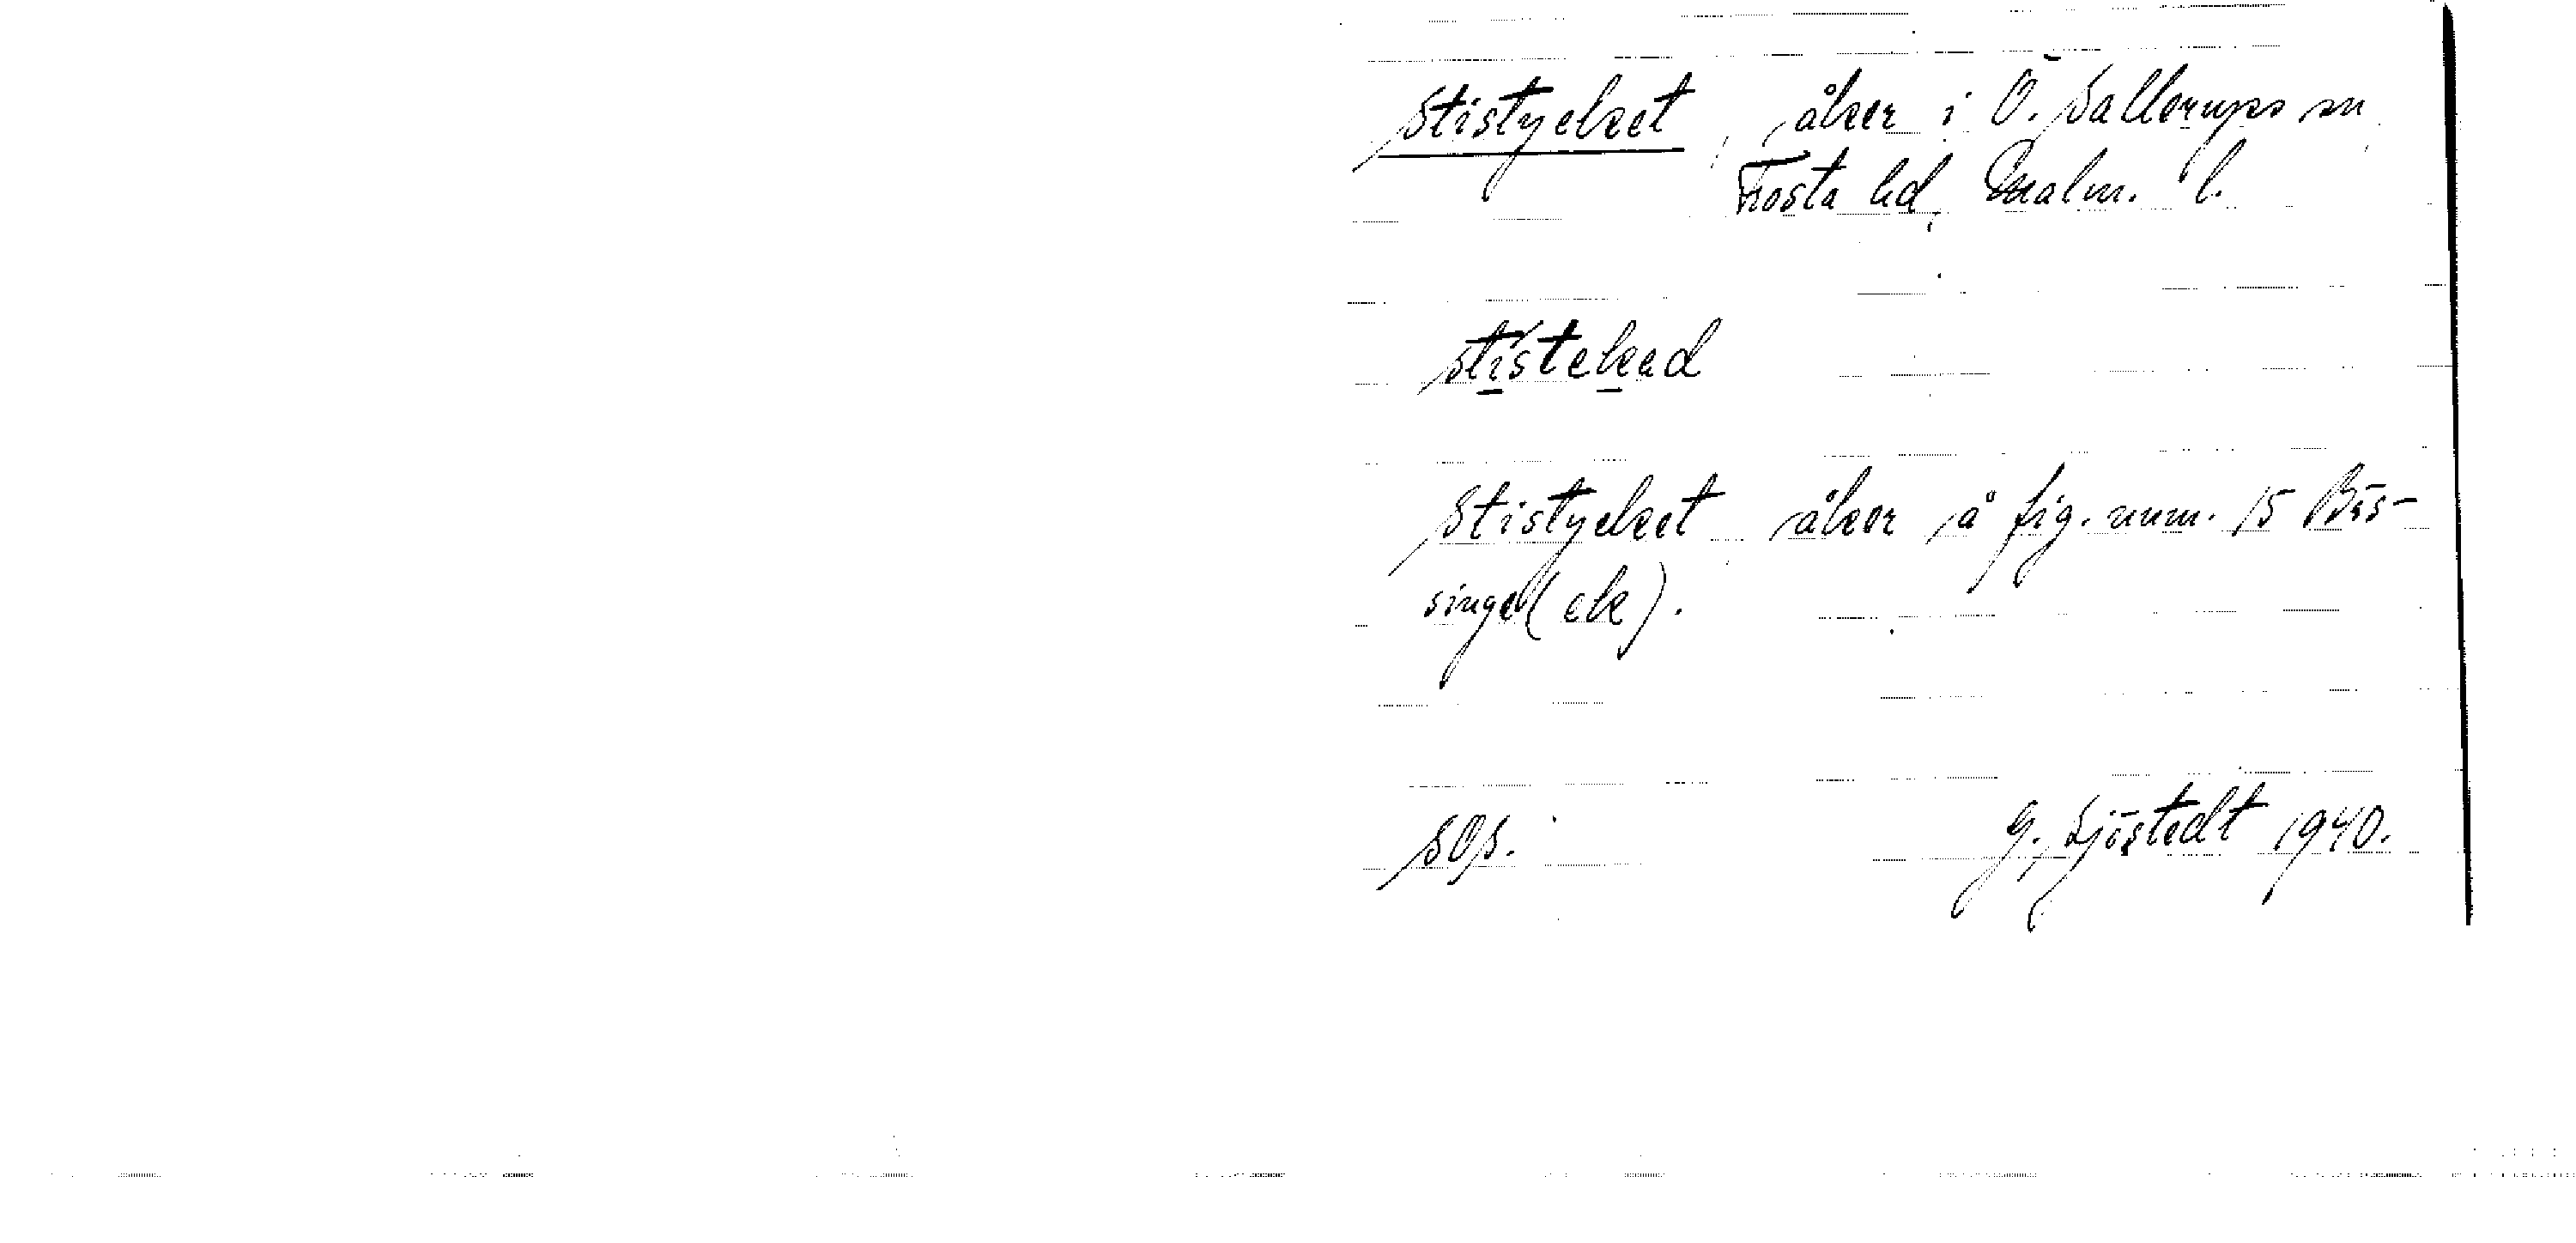 Stistycket, åker i Ö. Sallerups sn,
Frosta hd, Malm. l.
stisteked
Stistycket åker å fig. num. 15 Bis-
singe (ek).
SOS. G. Sjöstedt 1940.